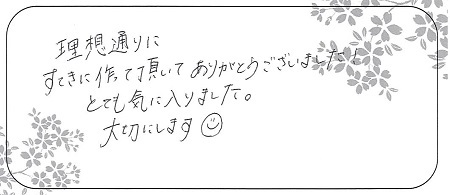 理想通りに
すてきに作って頂いてありがとうございました！
とても気に入りました。
大切にします☺